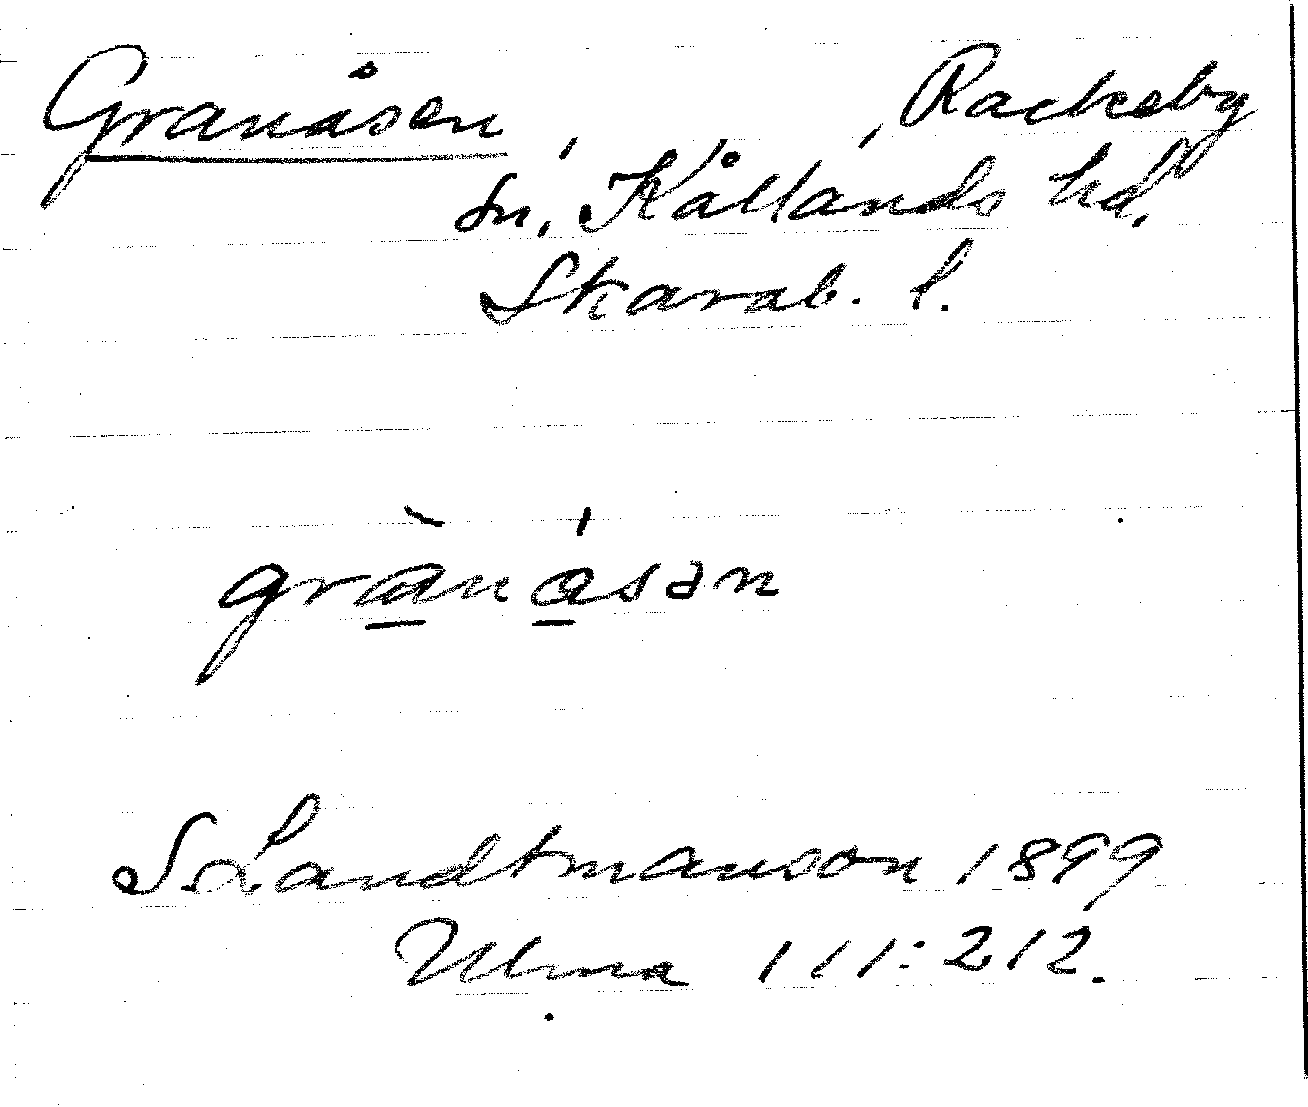 Granåsen, , Rackeby
sn, Kållands hd,
Skarab. l.
grànásən
S. Landtmanson 1899
Ulma 111:212.